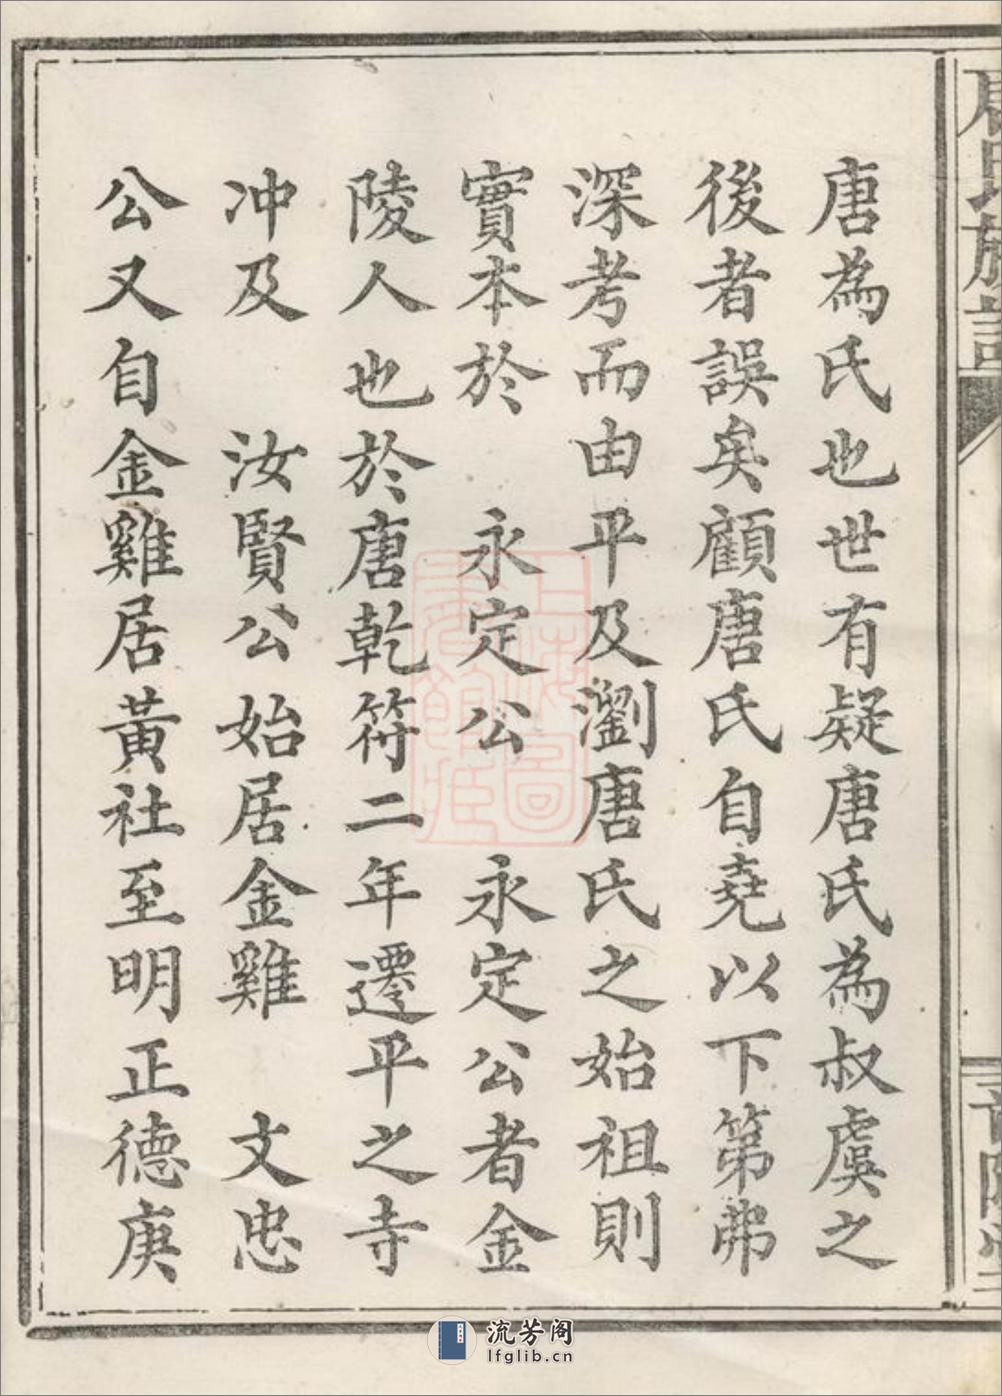 唐氏族譜
唐為氏也世有疑唐氏為叔虞之
後者誤矣顧唐氏自堯以下第弗
深考而由平及瀏唐氏之始祖則
實本於 永定公 永定公者金
陵人也於唐乾符二年遷平之寺
冲及 汝賢公始居金雞 文忠
公又自金雞居黃社至明正德庚
上海圖
書館藏
流芳阁
lfglib.cn